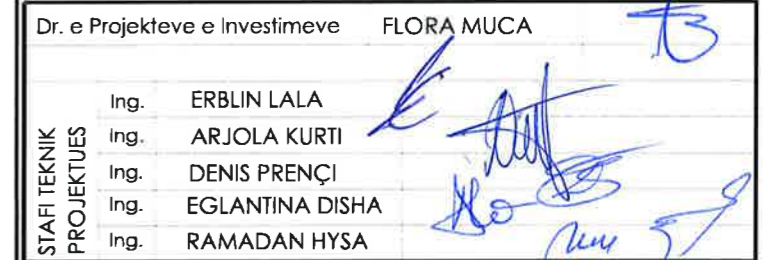 Dr. e Projekteve e Investimeve FLORA MUCA
STAFI TEKNIK
PROJEKTUES
Ing. ERBLIN LALA
Ing. ARJOLA KURTI
Ing. DENIS PRENÇI
Ing. EGLANTINA DISHA
Ing. RAMADAN HYSA